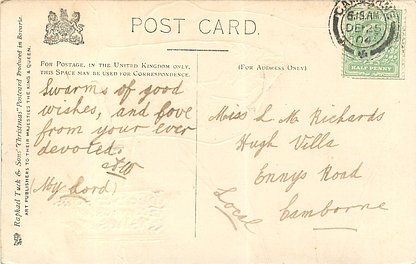 POST CARD.
FOR POSTAGE, IN THE UNITED KINGDOM ONLY,
THIS SPACE MAY BE USED FOR CORRESPONDENCE.
(FOR ADDRESS ONLY)
Raphael Tuck & Sons' "Christmas" Postcard Produced in Bavaria.
ART PUBLISHERS TO THEIR MAJESTIES THE KING & QUEEN.
HALF PENNY
Swarms of good
wishes, and love
from your ever
devoted.
(My Lord)
Miss L. M. Richards
Hugh Villa
Ennys Road
Local
Camborne